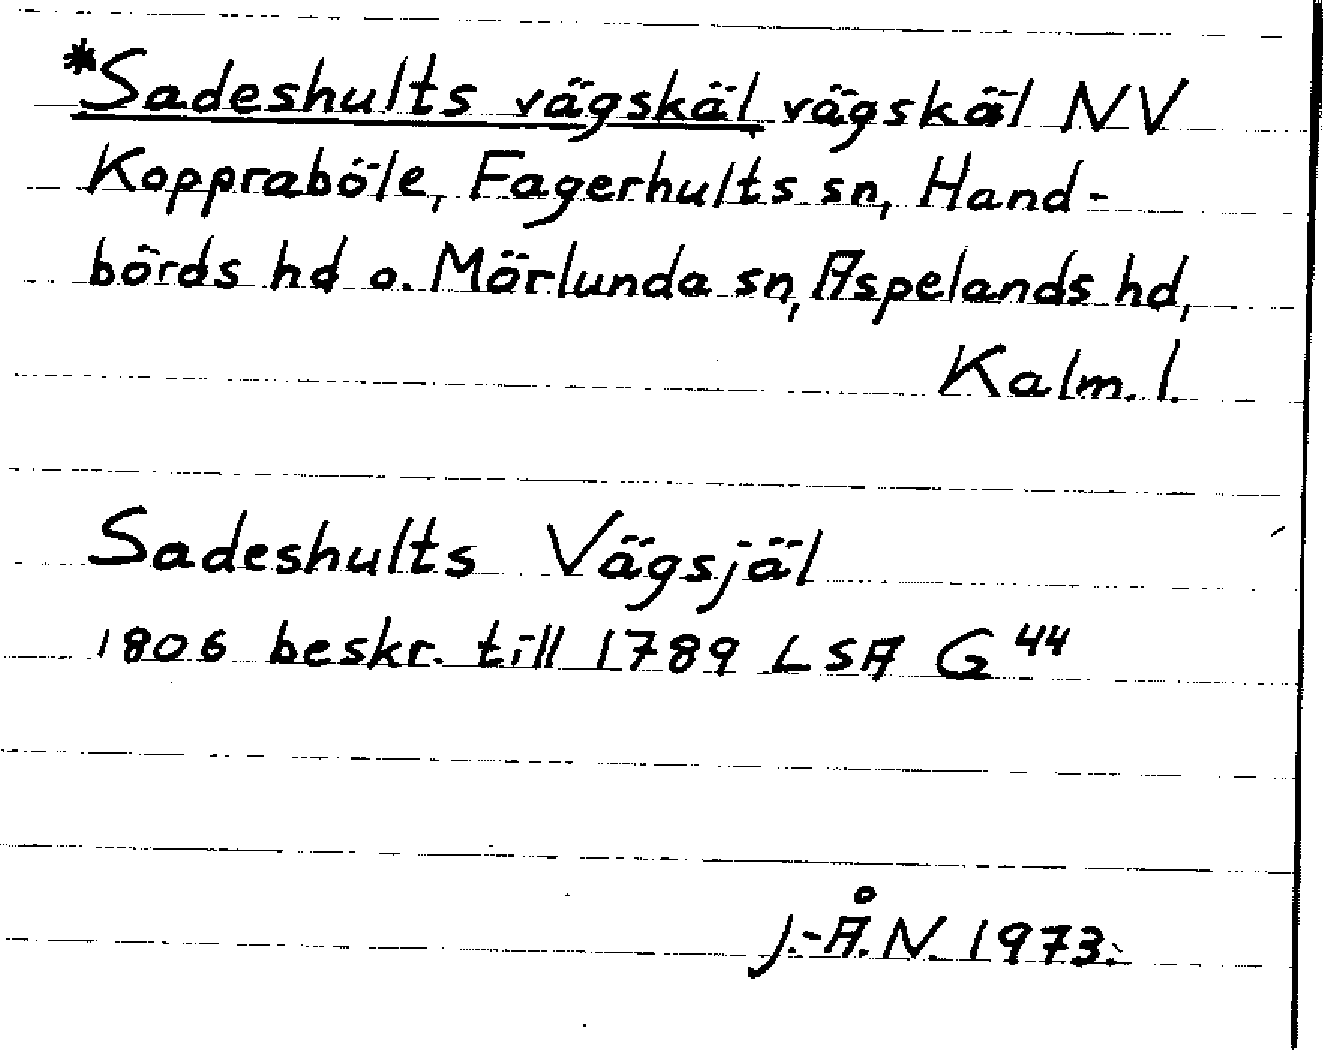 *Sadeshults vägskäl vägskäl NV
Koppraböle, Fagerhults sn, Hand-
börds hd o. Mörlunda sn, Aspelands hd,
Kalm. l.
Sadeshults Vägsjäl
1806 beskr. till 1789 LSA G 44
J.-Å. N. 1973.